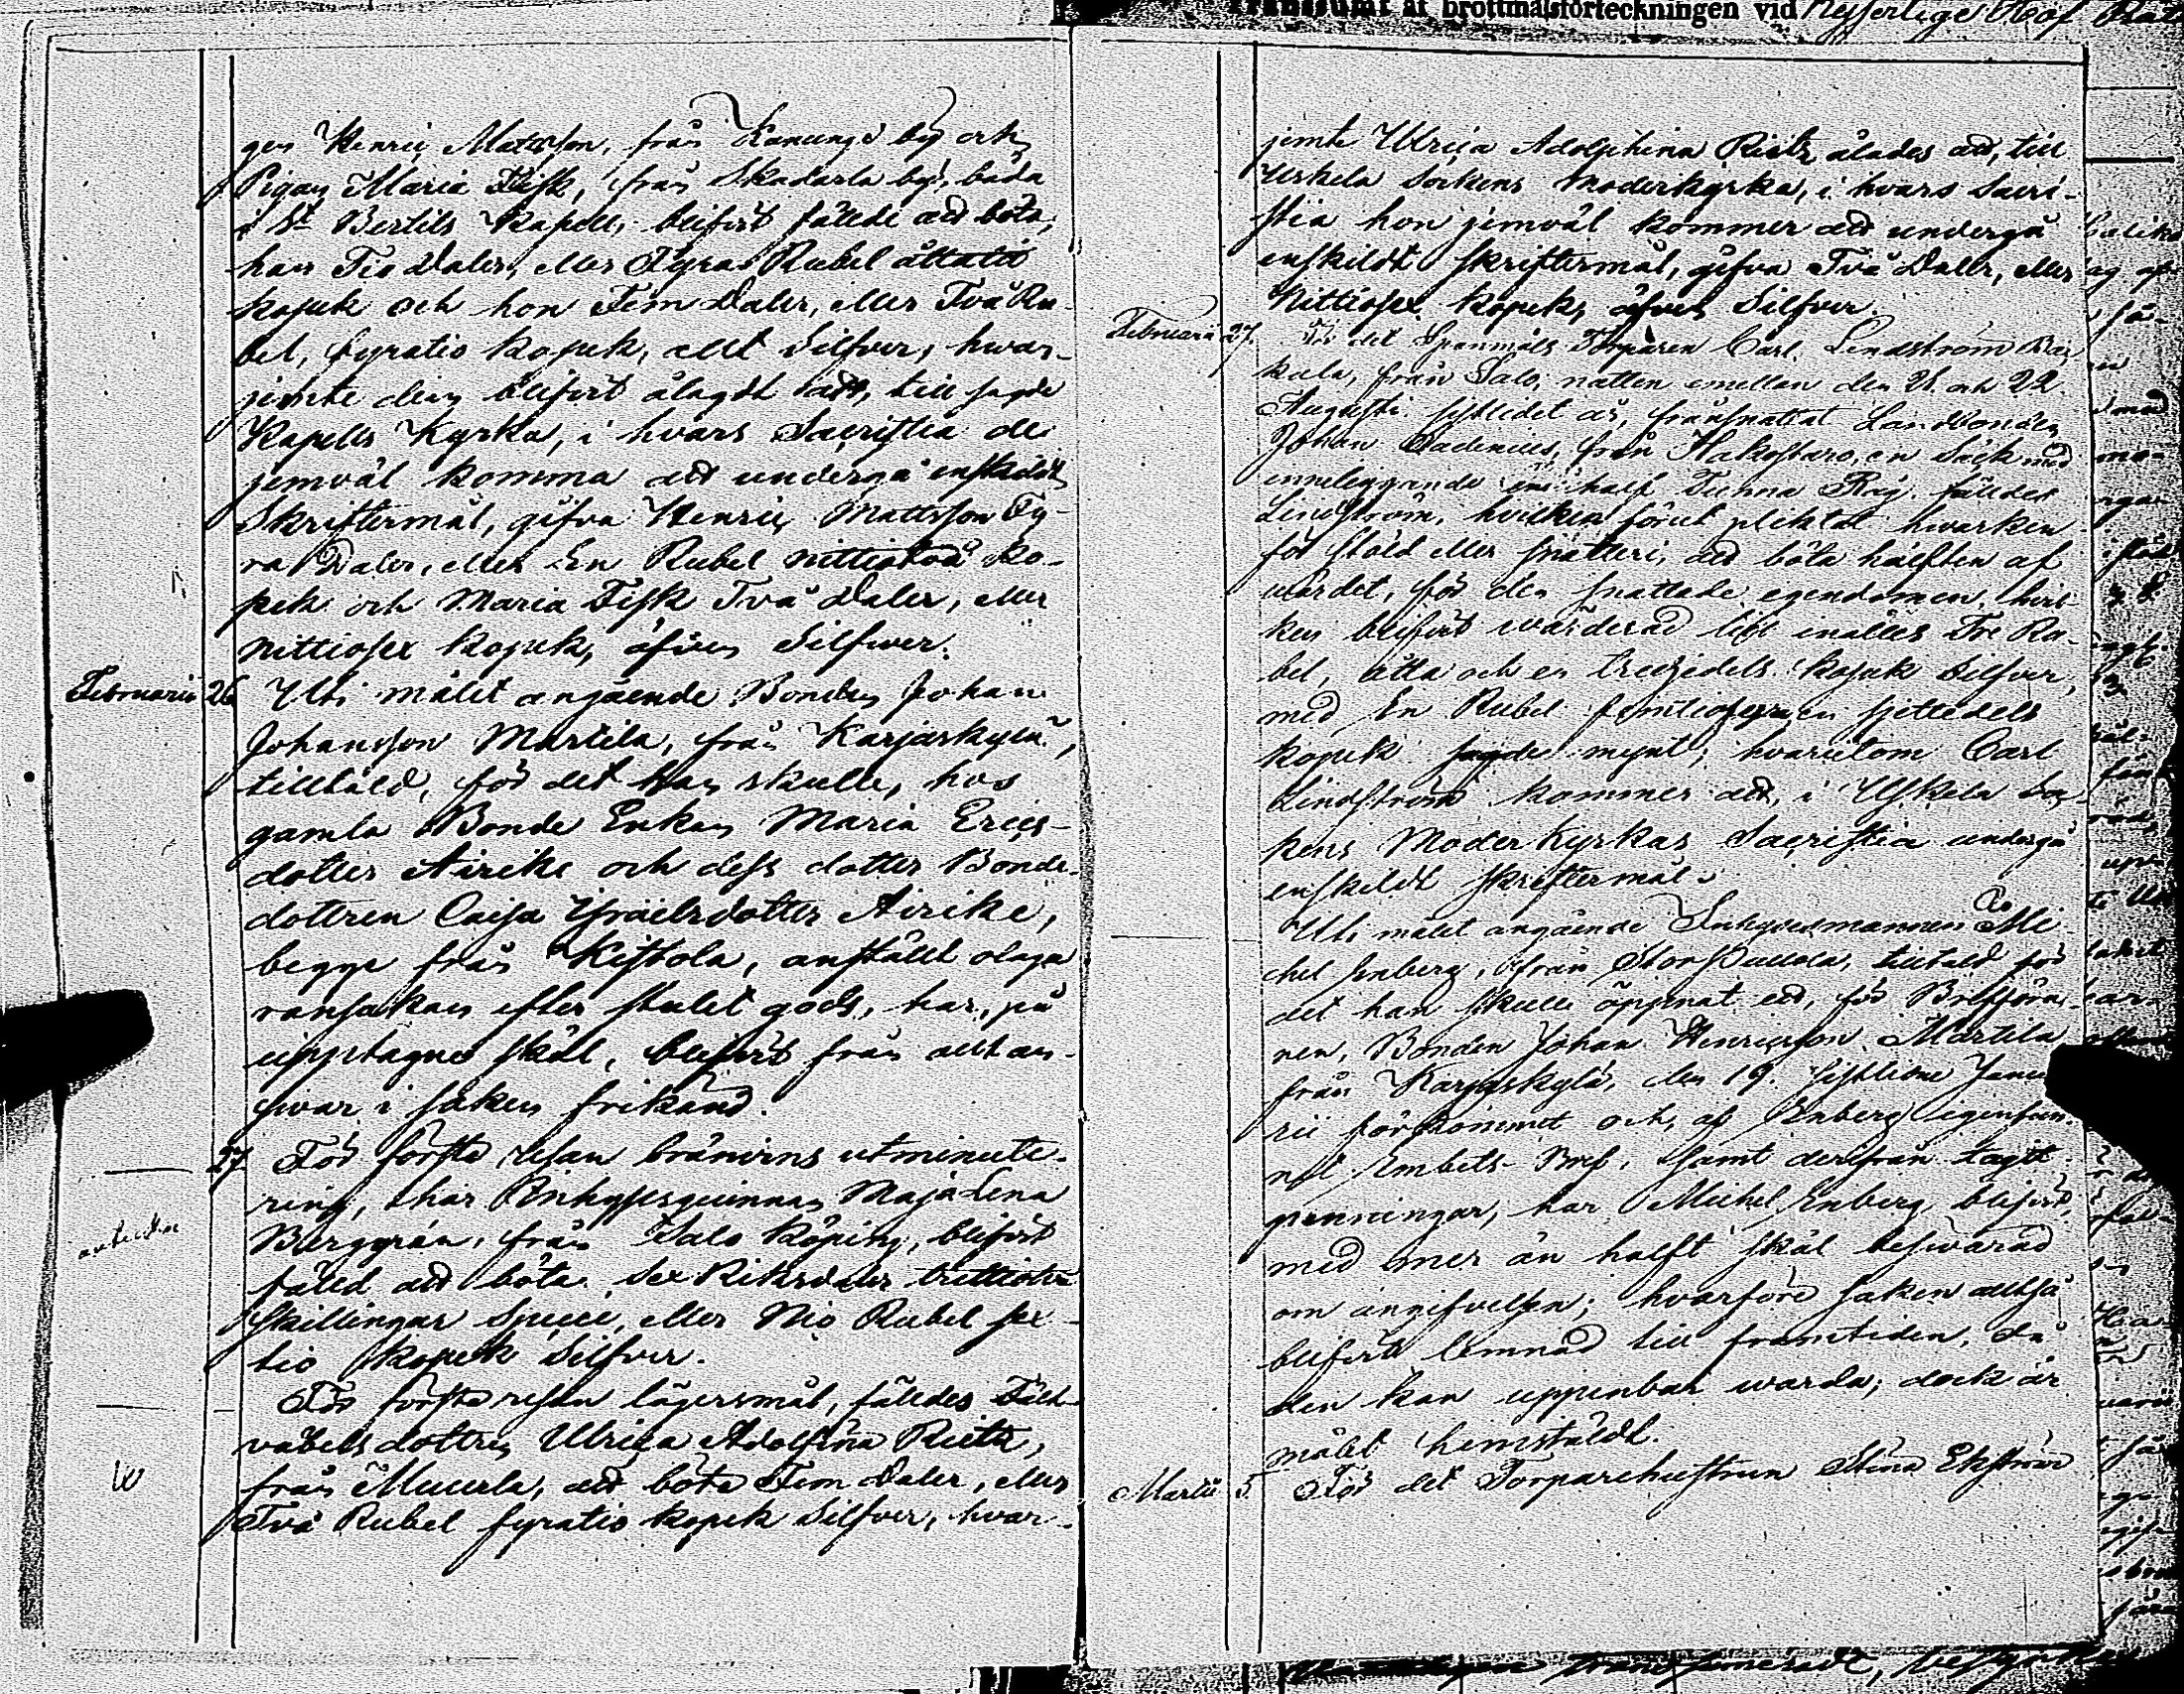 Transsumt af brottmålsförteckningen vid Kejserlige Hof Rätt
gen Henric Mattsson, från Kanunge by och
Pigan Maria Fisk, från Skadarla by, båda
i St Bertils Kapell, blifvit fällde att böta,
han Tio Daler, eller Fyra Rubel åttatio
kopek och hon Fem Daler, eller Två Ru-
bel, fyratio kopek, allt Silfver, hvar-
jemte dem blifvit ålagdt att, till sagde
Kapells Kyrka, i hvars Sacristia de
jemväl komma att undergå enskildt
Skriftermål, gifva Henric Mattsson Fy-
ra Daler, eller En Rubel nittiotvå ko-
pek och Maria Fisk Två Daler, eller
nittiosex kopek, äfven Silfver.
Februarii 26 Uti målet angående Bonden Johan
Johansson Martila, från Karjaskylä,
tilltald, för det han skulle, hos
gamla Bonde Enkan Maria Erics-
dotter Airike och dess dotter Bonde-
dottren Caisa Israelsdotter Airike,
begge från Kistola, anstäldt olaga
ransakan efter stulet gods, har, på
upptagne skäl, blifvit från allt an-
svar i saken frikänd.
27 För första resan bränvins utminute-
ring, har Inhysesquinnan Maja Lena
Berggrén, från Salo köping, blifvit
fälld att böta Sex Riksdaler trettiotvå
Skillingar Specie, eller Nio Rubel sex-
tio kopek Silfver.
För första resan lägersmål, fälldes Fält-
väbelsdottren Ulrica Adolfina Rietz,
från Muurla, att böta Fem Daler, eller
Två Rubel fyratio kopek Silfver, hvar-
jemte Ulrica Adolphina Rietz ålades att, till
Uskela Sockens Moderkyrka, i hvars Sacri-
stia hon jemväl kommer att undergå
enskildt skriftermål, gifva Två Daler, eller
Nittiosex kopek, äfven Silfver.
Februarii 27. För det Spanmåls Torparen Carl Lindström
kula, från Salo, natten emellan den 21 och 22
Augusti sistledet år, frånsnattat Landbonden
Johan Sadenius, från Hakostaro, en Säck med
inneliggande en half Tunna Råg, fälldes
Lindström, hvilken förut pliktat hvarken
för stöld eller snatteri, att böta hälften af
värdet, för den snattade egendomen, hvil-
ken blifvit värderad till inalles Tre Ru-
bel, åtta och en tredjedels kopek Silfver,
med En Rubel femtiofyra en sjettedels
kopek sagde mynt; hvarutom Carl
Lindström kommer att, i Uskela Soc-
kens Moder Kyrkas Sacristia undergå
enskildt skriftermål.
Uti målet angående Inhysesmannen Mi-
chel Enberg, från Stor Pullola, tilltald för
det han skulle öppnat ett, för Brefföra-
ren, Bonden Johan Henricsson Martila
från Karjaskylä, den 19. sistlidne Janua-
rii förkommet och, af Enberg igenfun-
nit Embets-Bref, samt derifrån tagit
penningar, har Michel Enberg blifvit,
med mer än halft skäl besvärad
om angifvelsen; hvarföre saken altså
blifvit lemnad till framtiden, då
den kan uppenbar warda; dock är
målet hemstäldt.
Martii 5. För det Torparehustrun Stina Ekström